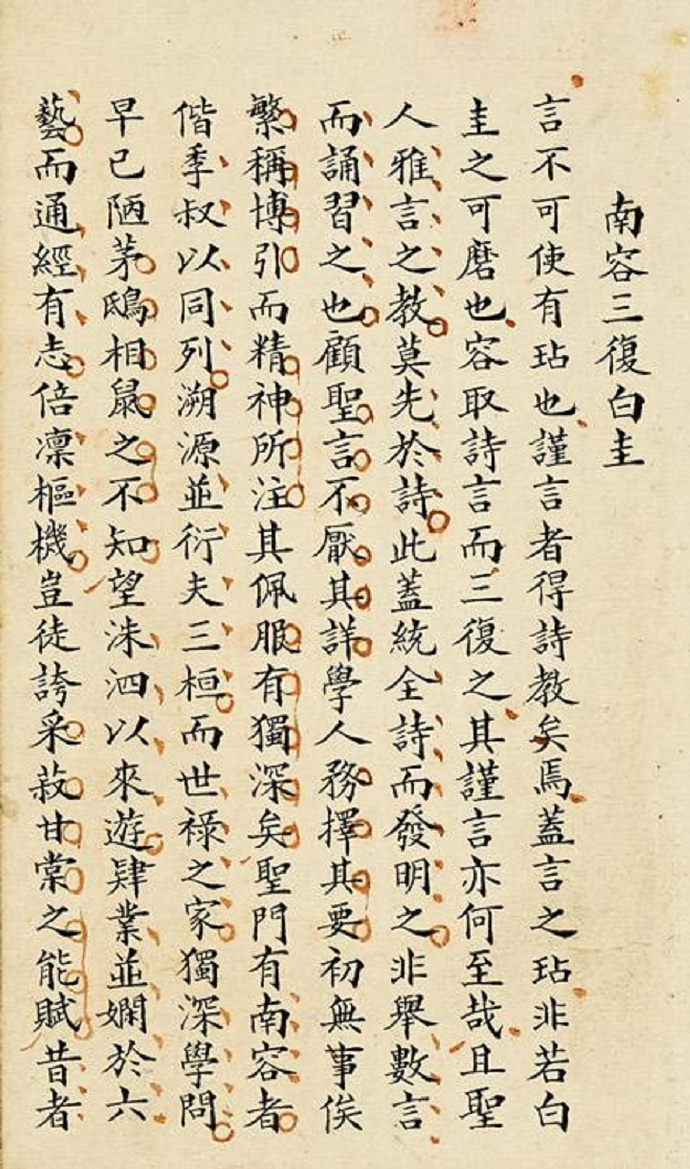 南容三復白圭
言不可使有玷也謹言者得詩教矣焉蓋言之玷非若白
圭之可磨也容取詩言而三復之其謹言亦何至哉且聖
人雅言之教莫先於詩此蓋統全詩而發明之非舉數言
而誦習之也顧聖言不厭其詳學人務擇其要初無事俟
繁稱博引而精神所注其佩服有獨深矣聖門有南容者
偕季叔以同列溯源並衍夫三桓而世祿之家獨深學問
早已陋茅鴟相鼠之不知望洙泗以來遊肄業並嫻於六
藝而通經有志倍凜樞機豈徒誇采菽甘棠之能賦昔者